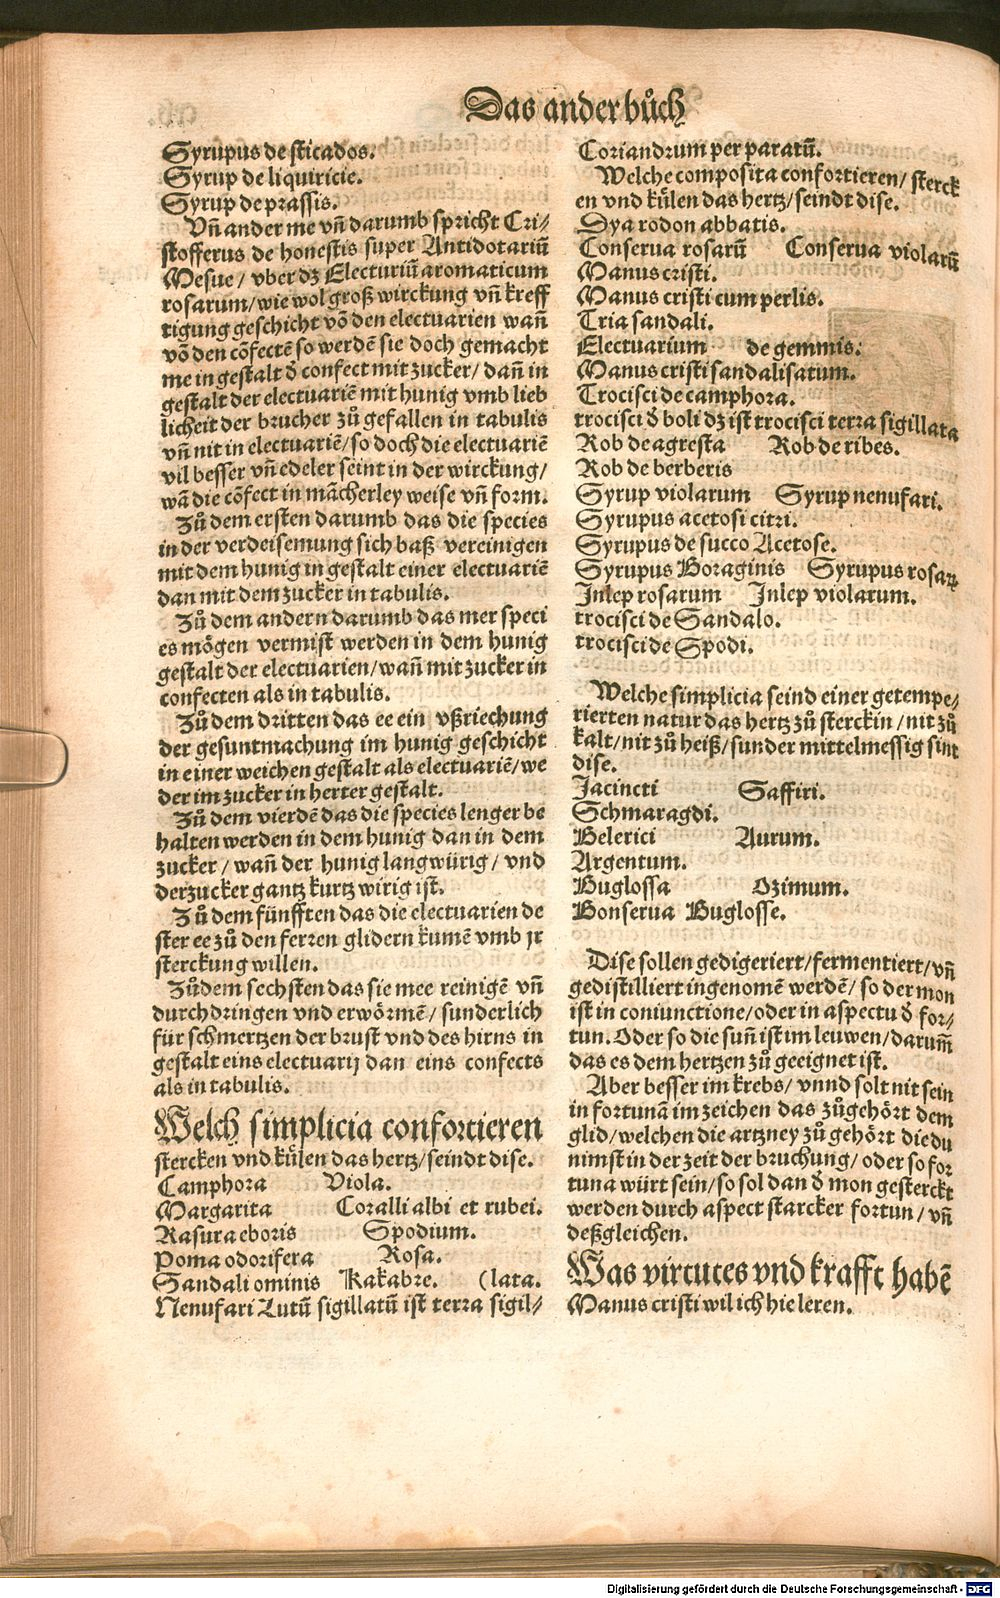 Das ander bůch
Syrupus de sticados.
Syrup de liquiricie.
Syrup de prassis.
Vñ ander me vñ darumb spricht Cri⸗
stofferus de honestis super Antidotariũ
Mesue / vber dz Electuriũ aromaticum
rosarum/ wie wol groß wirckung vñ kreff
tigung geschicht võ den electuarien wañ
võ den cõfectẽ so werdẽ sie doch gemacht
me in gestalt ð confect mit zucker/ dañ in
gestalt der electuariẽ mit hunig vmb lieb
licheit der brucher zů gefallen in tabulis
vñ nit in electuariẽ/ so doch die electuariẽ
vil besser vñ edeler seint in der wirckung/
wã die cõfect in mãcherley weise vñ form.
Zů dem ersten darumb das die species
in der verdeisemung sich baß vereinigen
mit dem hunig in gestalt einer electuariẽ
dan mit dem zucker in tabulis.
Zů dem andern darumb das mer speci
es mögen vermist werden in dem hunig
gestalt der electuarien/ wañ mit zucker in
confecten als in tabulis.
Zů dem dritten das ee ein vßriechung
der gesuntmachung im hunig geschicht
in einer weichen gestalt als electuariẽ/ we
der im zucker in herter gestalt.
Zů dem vierdẽ das die species lenger be
halten werden in dem hunig dan in dem
zucker / wañ der hunig langwürig / vnd
der zucker gantz kurtz wirig ist.
Zů dem fünfften das die electuarien de
ster ee zů den ferren glidern kumẽ vmb jr
sterckung willen.
Zů dem sechsten das sie mee reinigẽ vñ
durch dringen vnd erwörmẽ/ sunderlich
für schmertzen der brust vnd des hirns in
gestalt eins electuarij dan eins confects
als in tabulis.
Welch simplicia confortieren
stercken vnd kůlen das hertz/ seindt dise.
Camphora Viola.
Margarita Coralli albi et rubei.
Rasura eboris Spodium.
Poma odorifera Rosa.
Sandali ominis Kakabre. (lata.
Nenufari Lutũ sigillatũ ist terra sigil⸗
Coriandrum per paratũ.
Welche composita confortieren/ sterck
en vnd kůlen das hertz/ seindt dise.
Dya rodon abbatis.
Conserua rosarũ Conserua violarũ
Manus cristi.
Manus cristi cum perlis.
Tria sandali.
Electuarium de gemmis.
Manus cristi sandalisatum.
Trocisci de camphora.
trocisci ð boli dz ist trocisci terra sigillata
Rob de agresta Rob de ribes.
Rob de berberis
Syrup violarum Syrup nenufari.
Syrupus acetosi citri.
Syrupus de succo Acetose.
Syrupus Boraginis Syrupus rosaꝝ
Julep rosarum Julep violarum.
trocisci de Sandalo.
trocisci de Spodi.
Welche simplicia seind einer getempe⸗
rierten natur das hertz zů sterckin / nit zů
kalt/ nit zů heiß/ sunder mittelmessig sint
dise.
Jacincti Saffiri.
Schmaragdi.
Belerici Aurum.
Argentum.
Buglossa Ozimum.
Bonserua Buglosse.
Dise sollen gedigeriert/ fermentiert/ vñ
gedistilliert ingenomẽ werdẽ/ so der mon
ist in coniunctione/ oder in aspectu ð for⸗
tun. Oder so die suñ ist im leuwen/ darum̃
das es dem hertzen zů geeignet ist.
Aber besser im krebs/ vnnd solt nit sein
in fortunã im zeichen das zůgehört dem
glid/ welchen die artzney zů gehört die du
nimst in der zeit der bruchung/ oder so for
tuna würt sein/ so sol dan ð mon gesterckt
werden durch aspect starcker fortun / vñ
deßgleichen.
Was virtutes vnd krafft habẽ
Manus cristi wil ich hie leren.
Digitalisierung gefördert durch die Deutsche Forschungsgemeinschaft - DFG